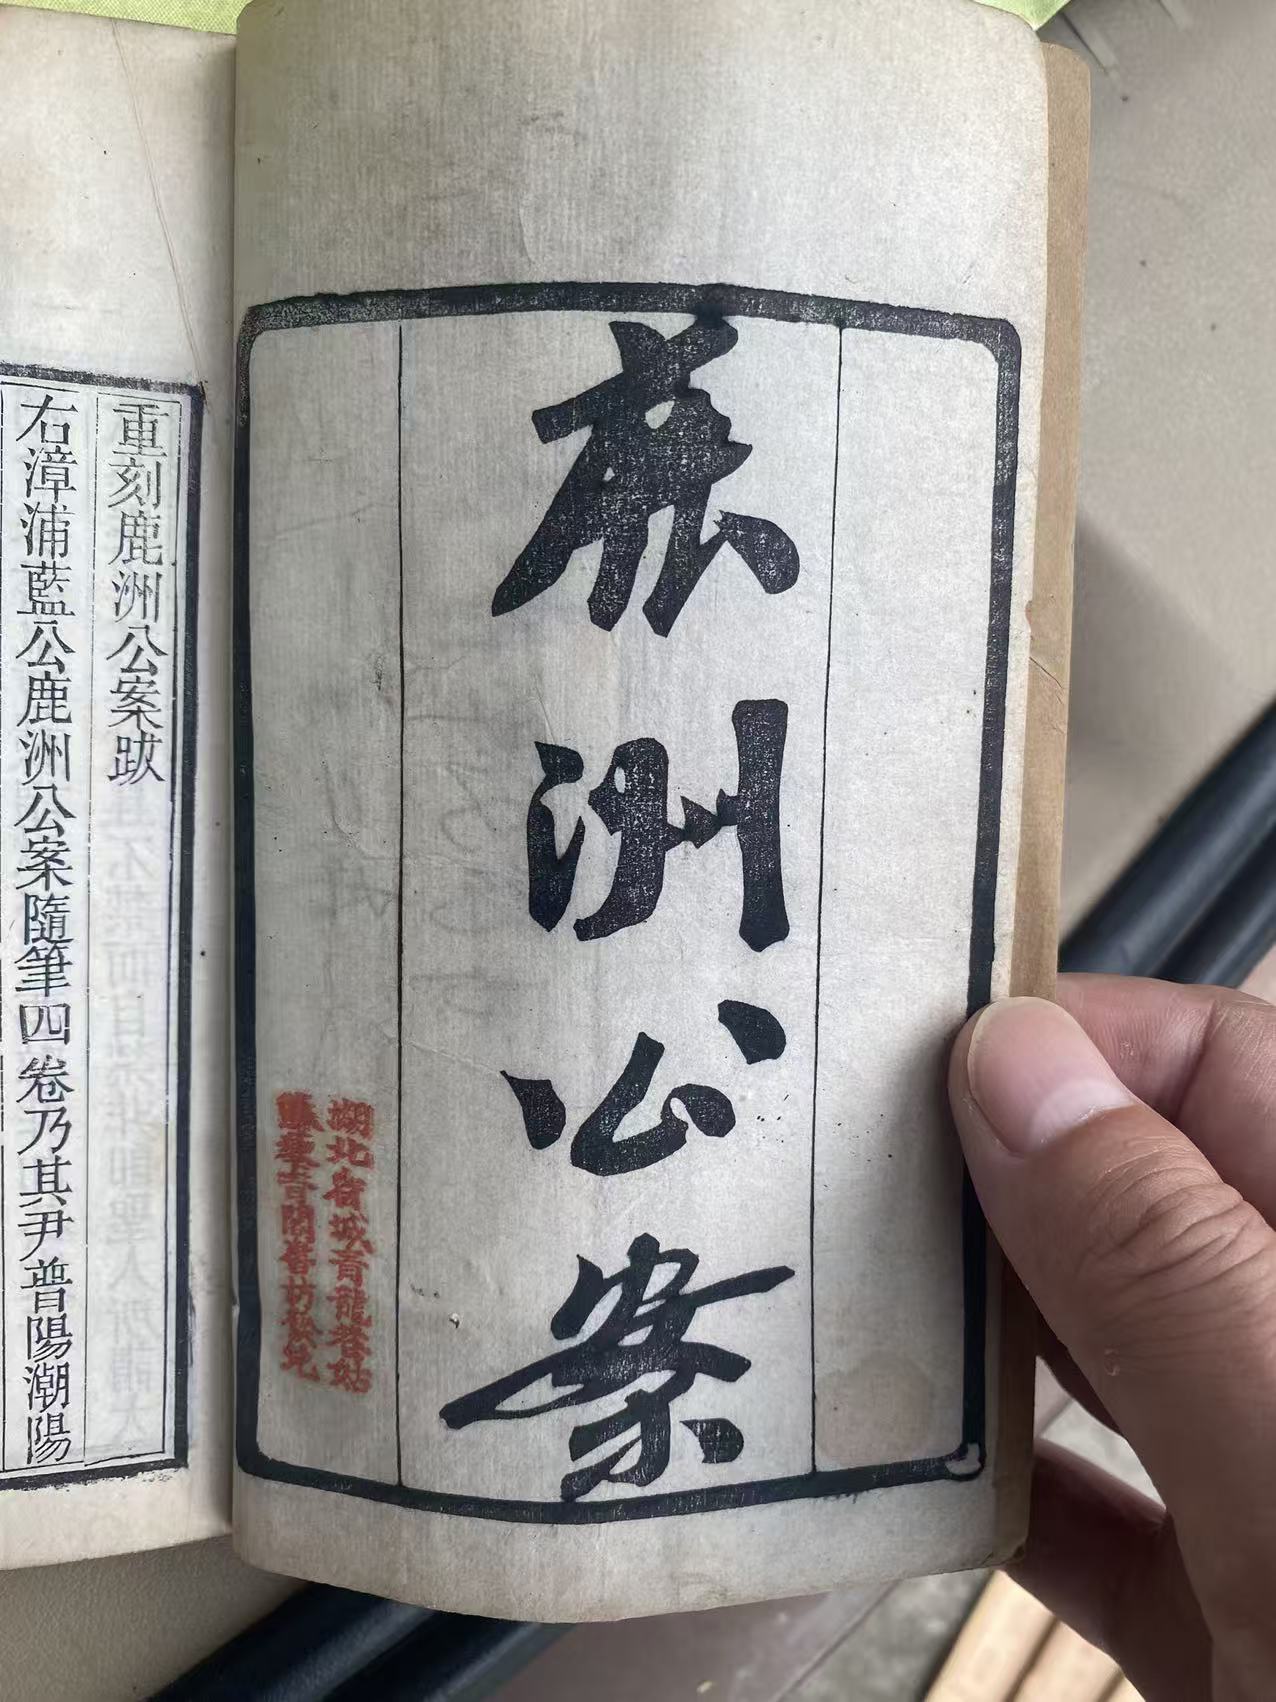 鹿洲公案
湖北省城青龍巷姑
臊經言閣書坊發兌
重刻鹿洲公案跋
右漳浦藍公鹿洲公案隨筆四卷乃其尹普陽潮陽